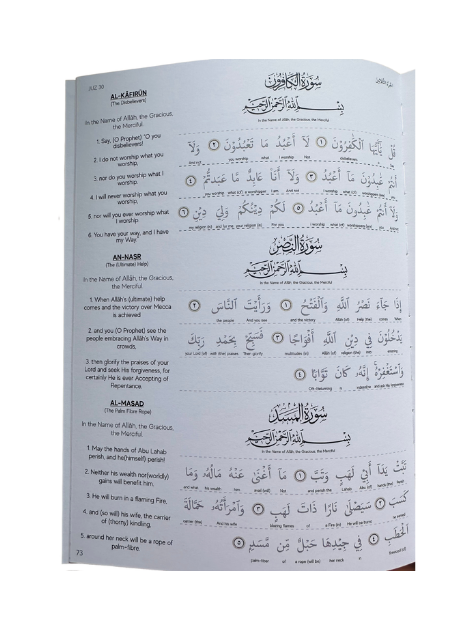 JUZ 30
AL-KĀFIRŪN
(The Disbelievers)
In the Name of Allāh, the Gracious,
the Merciful
1. Say, (O Prophet) "O you
disbelievers!
2. I do not worship what you
worship,
3. nor do you worship what I
worship.
4. I will never worship what you
worship,
5. nor will you ever worship what
I worship.
6. You have your way, and I have
my Way."
AN-NASR
(The Ultimate Help)
In the Name of Allāh, the Gracious,
the Merciful
1. When Allāh's (ultimate) help
comes and the victory over Mecca
is achieved
2. and you (O Prophet) see the
people embracing Allāh's Way in
crowds,
3. then glorify the praises of your
Lord and seek His forgiveness, for
certainly He is ever Accepting of
Repentance.
AL-MASAD
(The Palm Fibre Rope)
In the Name of Allāh, the Gracious,
the Merciful
1. May the hands of Abu Lahab
perish, and he(himself) perish!
2. Neither his wealth nor(worldly)
gains will benefit him.
3. He will burn in a flaming Fire,
4. and (so will) his wife, the carrier
of (thorny) kindling,
5. around her neck will be a rope of
palm-fibre.
73
سُورَةُ الكَافِرُونَ
بِسْمِ اللَّهِ الرَّحْمَٰنِ الرَّحِيمِ
In the Name of Allāh, the Gracious, the Merciful
قُلْ يَٰٓأَيُّهَا ٱلْكَٰفِرُونَ ١ لَآ أَعْبُدُ مَا تَعْبُدُونَ ٢ وَلَآ
disbelievers I worship what you worship And not
أَنتُمْ عَٰبِدُونَ مَآ أَعْبُدُ ٣ وَلَآ أَنَا۠ عَابِدٌ مَّا عَبَدتُّمْ ٤
وَلَآ أَنتُمْ عَٰبِدُونَ مَآ أَعْبُدُ ٥ لَكُمْ دِينُكُمْ وَلِيَ دِينِ ٦
سُورَةُ النَّصْرِ
بِسْمِ اللَّهِ الرَّحْمَٰنِ الرَّحِيمِ
In the Name of Allāh, the Gracious, the Merciful
إِذَا جَآءَ نَصْرُ ٱللَّهِ وَٱلْفَتْحُ ١ وَرَأَيْتَ ٱلنَّاسَ ٢
and the victory And you see the people
يَدْخُلُونَ فِي دِينِ ٱللَّهِ أَفْوَاجًا ٣ فَسَبِّحْ بِحَمْدِ رَبِّكَ
وَٱسْتَغْفِرْهُ إِنَّهُۥ كَانَ تَوَّابًا ٤
سُورَةُ المَسَدِ
بِسْمِ اللَّهِ الرَّحْمَٰنِ الرَّحِيمِ
In the Name of Allāh, the Gracious, the Merciful
تَبَّتْ يَدَآ أَبِي لَهَبٍ وَتَبَّ ١ مَآ أَغْنَىٰ عَنْهُ مَالُهُۥ وَمَا
كَسَبَ ٢ سَيَصْلَىٰ نَارًا ذَاتَ لَهَبٍ ٣ وَٱمْرَأَتُهُۥ حَمَّالَةَ
ٱلْحَطَبِ ٤ فِي جِيدِهَا حَبْلٌ مِّن مَّسَدٍ ٥